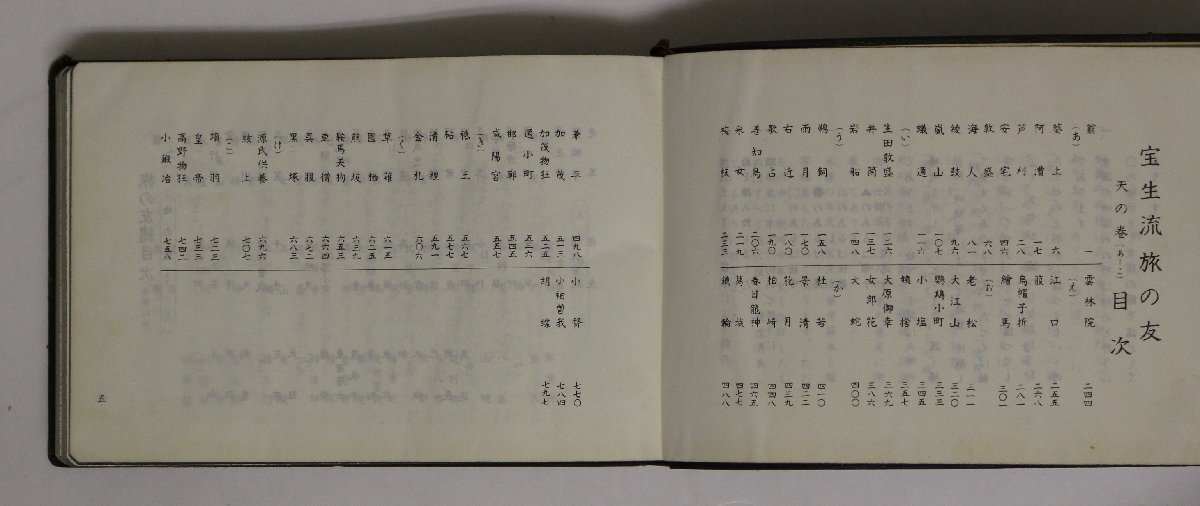 宝生流旅の友
天の巻(あーこ)目次
翁 一
(あ)
葵上 六
阿漕 一七
芦刈 二八
安宅 四六
敦盛 六八
海人 八一
綾鼓 九六
嵐山 一〇七
蟻通 一一六
(い)
生田敦盛 一二六
井筒 一三七
岩船 一四八
(う)
鵜飼 一五八
雨月 一七〇
右近 一八〇
歌占 一九〇
善知鳥 二〇六
采女 二一九
梅枝 二三三
雲林院 二四四
(え)
江口 二五五
箙 二六八
烏帽子折 二八一
繪馬 三〇一
(お)
老松 三一一
大江山 三二〇
鸚鵡小町 三三三
小塩 三四五
姨捨 三五七
大原御幸 三六九
女郎花 三八六
大蛇 四〇〇
(か)
杜若 四一〇
景清 四二二
花月 四三九
柏崎 四四八
春日龍神 四六五
葛城 四七七
鉄輪 四八八
兼平 四九八
加茂 五一三
加茂物狂 五二五
通小町 五三六
邯鄲 五四五
咸陽宮 五五七
(き)
祇王 五六七
砧 五七七
清経 五九一
金札 六〇六
(く)
草薙 六一五
國栖 六二五
熊坂 六三九
鞍馬天狗 六五三
車僧 六六四
呉服 六七二
黒塚 六八三
(け)
源氏供養 六九六
絃上 七〇七
(こ)
項羽 七二三
皇帝 七三三
高野物狂 七四二
小鍛冶 七五八
小督 七七〇
小袖曽我 七八四
胡蝶 七九七
五